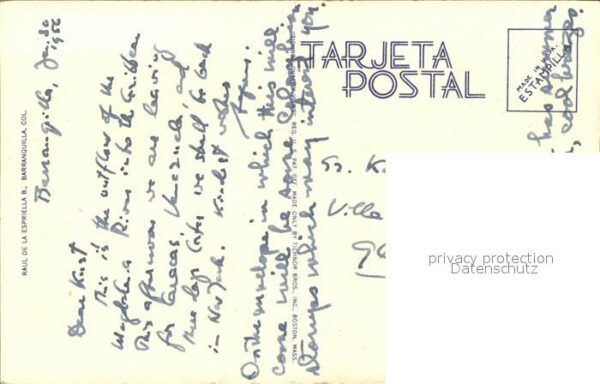 TARJETA
POSTAL
MADE IN U.S.A.
ESTAMPILLA
RAUL DE LA ESPRIELLA B., BARRANQUILLA, COL.
REG. U. S. PAT. OFF. MADE ONLY BY TICHNOR BROS., INC., BOSTON, MASS.
Barranquilla, Jan. 30
1956
Dear Kurt
This is the outflow of the
Magdalena River into the Caribbean
This afternoon we are leaving
for Caracas, Venezuela, and
days later we shall be back
in New York. Kindest wishes
On the envelope in which this will
come will be some Colombian
stamps which may interest you.
has a summer
, cool breezes.
Ville
privacy protection
Datenschutz